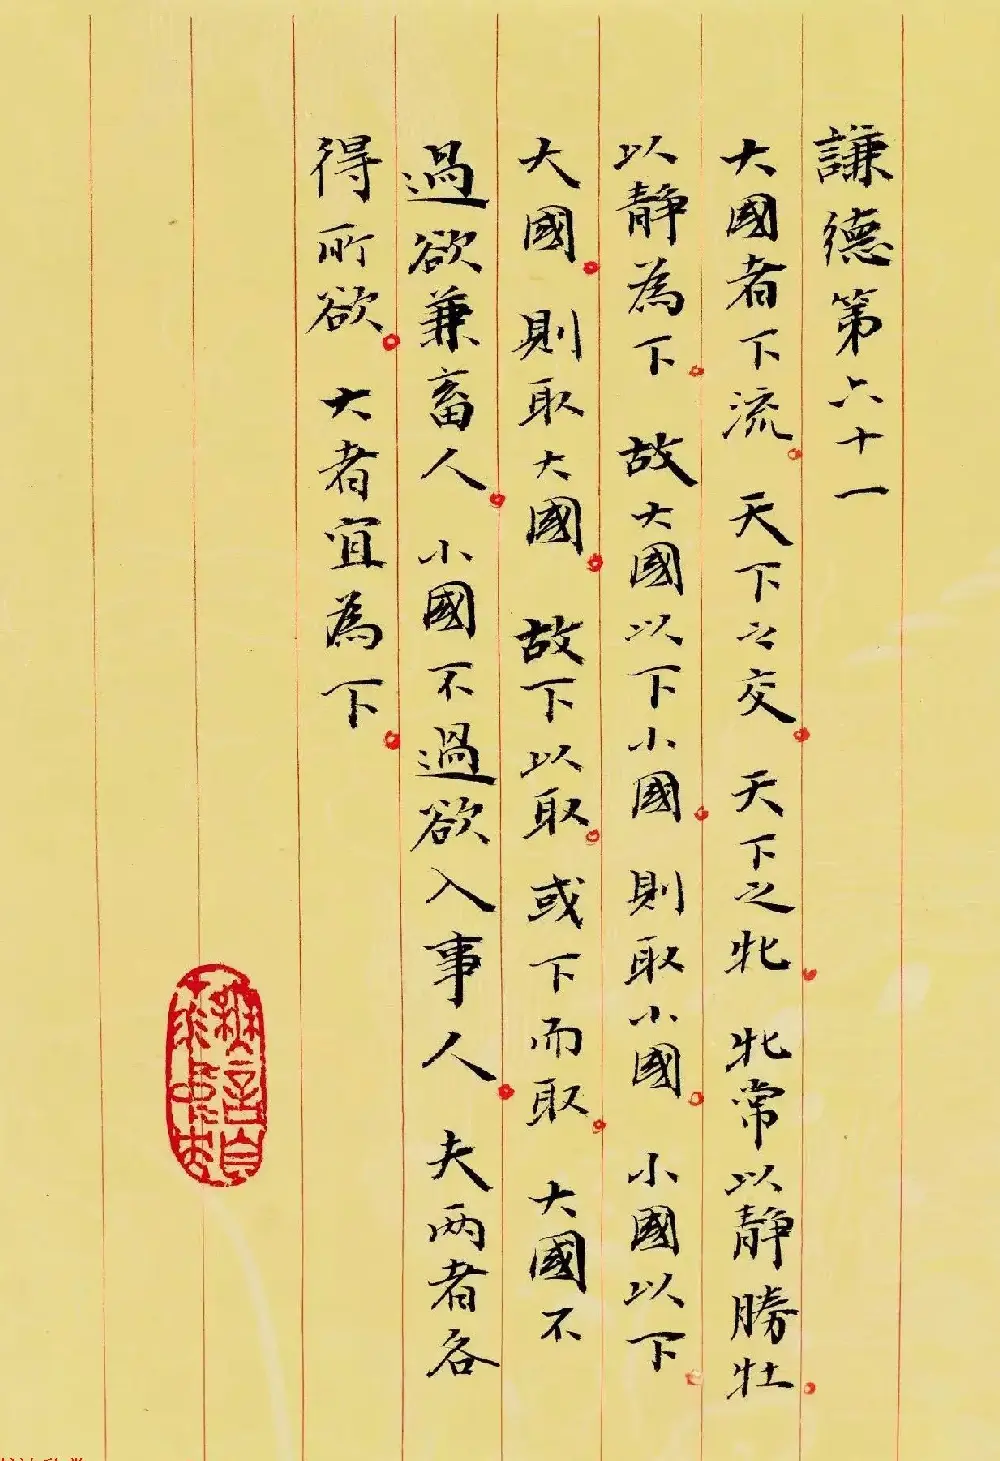 謙德第六十一
大國者下流。天下之交。天下之牝。牝常以靜勝牡。
以靜為下。故大國以下小國。則取小國。小國以下
大國。則取大國。故下以取。或下而取。大國不
過欲兼畜人。小國不過欲入事人。夫两者各
得所欲。大者宜為下。